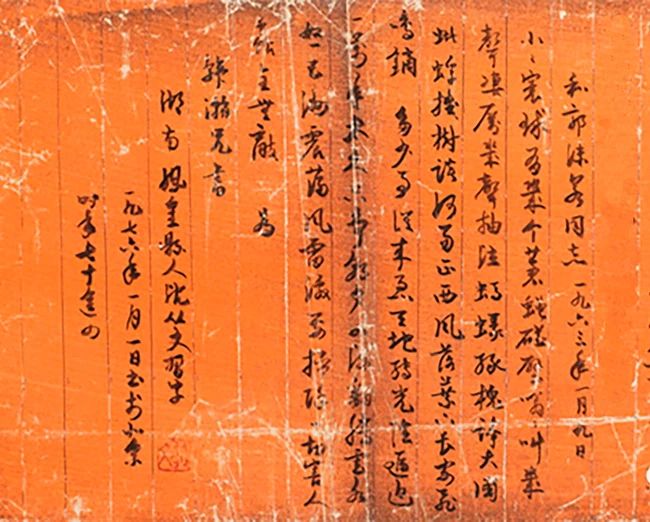 和郭沫若同志 一九六三年一月九日
小〻寰球有幾个蒼蝇碰壁嗡〻叫幾
聲凄厲幾聲抽泣螞蟻緣槐誇大國
蚍蜉撼樹談何易正西風落葉下長安飛
鳴鏑 多少事從来急天地轉光陰迫
一萬年太久只争朝夕四海翻騰雲水
怒五洲震蕩風雷激要掃除一切害人
蟲全無敵 為
韩瀚兄書
湖南鳳皇縣人沈从文習字
一九七六年一月一日書於北京
時年七十進四